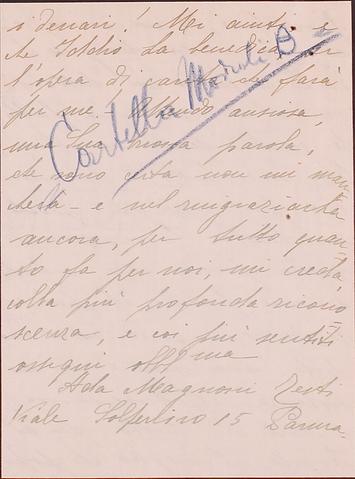 i denari! Mi aiuti, e
che Iddio La benedica per
l'opera di carità che farà
per me. Attendo ansiosa
una Sua buona parola,
che sono certa non mi man
cherà - e nel ringraziarla
ancora, per tutto quan
to fa per noi, mi creda,
colla più profonda ricono
scenza, e coi più sentiti
ossequi obbl.ma
Ada Magnoni Testi
Viale Solferino 15 Parma
Cartella